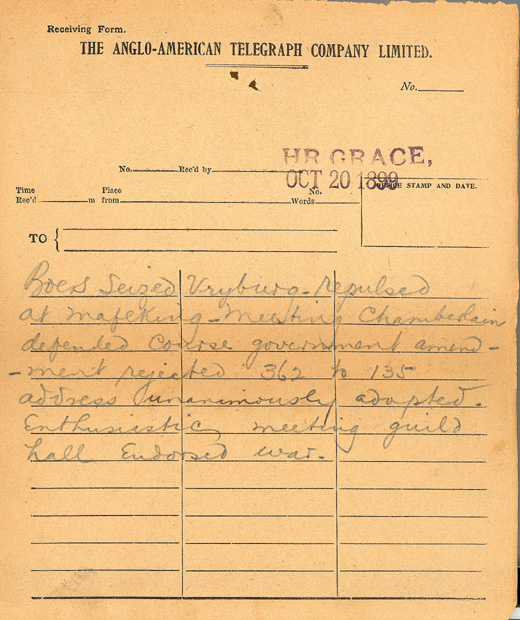 Receiving Form.
THE ANGLO-AMERICAN TELEGRAPH COMPANY LIMITED.
No.
HR GRACE,
No. Rec'd by
OCT 20 1899
Time Place No. STAMP AND DAVE.
Rec'd m from Words
TO {
Boers Seized Vryburg - repulsed
at Mafeking - Meeting Chamberlain
defended course government amend-
-ment rejected 362 to 135
address unanimously adopted.
Enthusiastic meeting guild
hall Endorsed war.